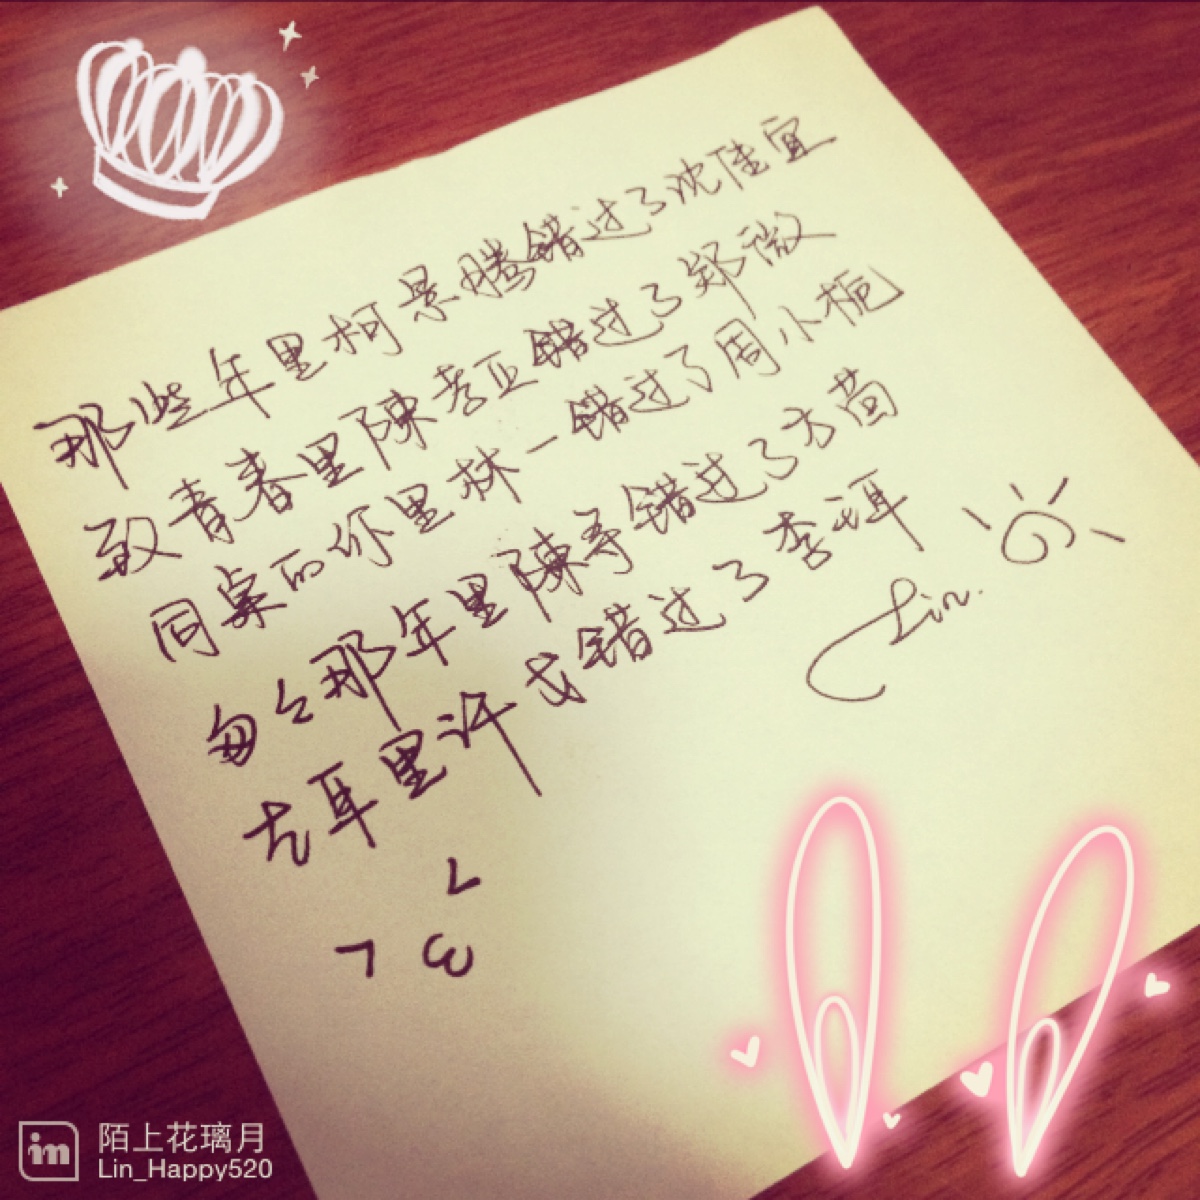 那些年里柯景腾错过了沈佳宜
致青春里陳孝正错过了郑微
同桌的你里林一错过了周小栀
匆匆那年里陳寻错过了方茴
左耳里许弋错过了李珥
Lin.
陌上花璃月
Lin_Happy520